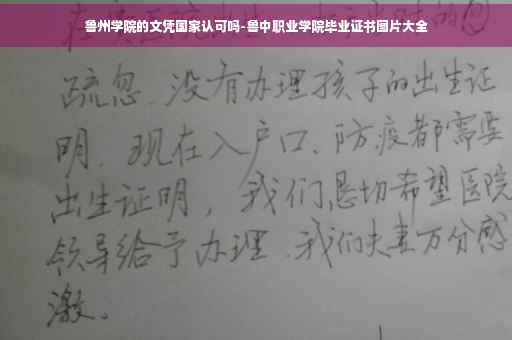 鲁州学院的文凭国家认可吗-鲁中职业学院毕业证书图片大全
疏忽.没有办理孩子的出生证
明.现在入户口、防疫都需要
出生证明，我们恳切希望医院
领导给予办理.我们夫妻万分感
激。